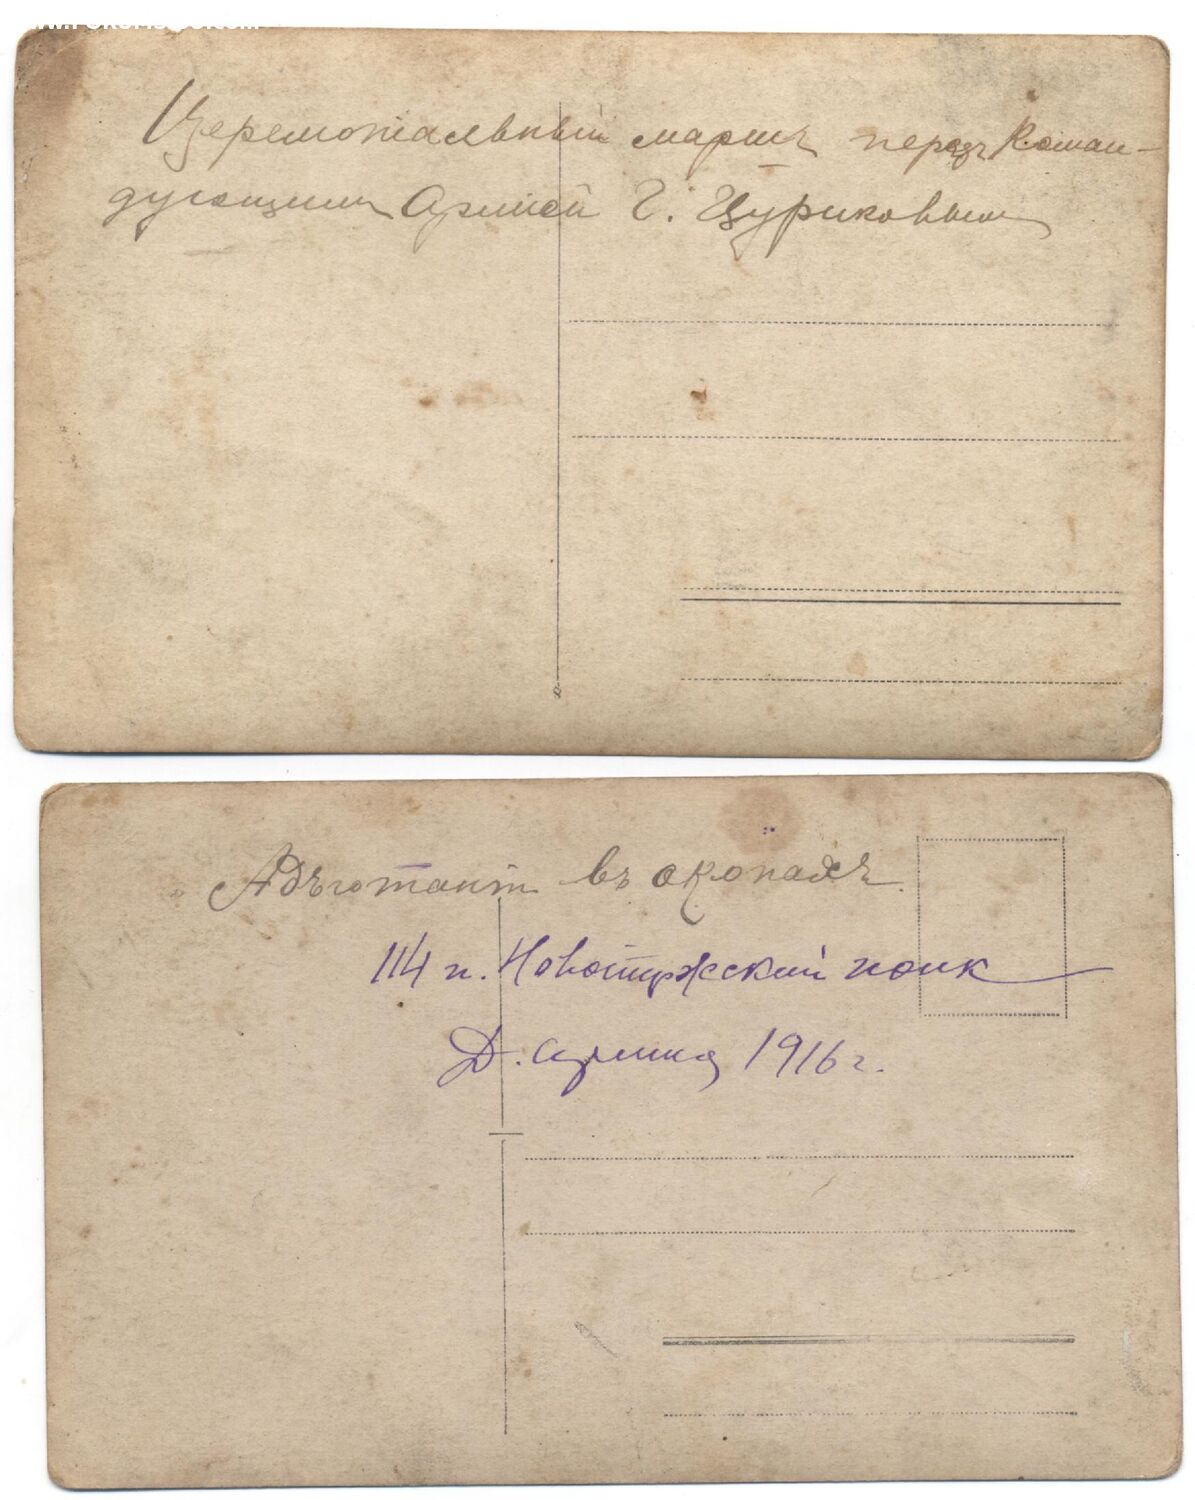 Церемоніальный маршъ передъ Коман-
дующимъ Арміей Г. Цуриковымъ
Адъютантъ въ окопахъ.
114 п. Новоторжскій полкъ
Д. армія 1916 г.